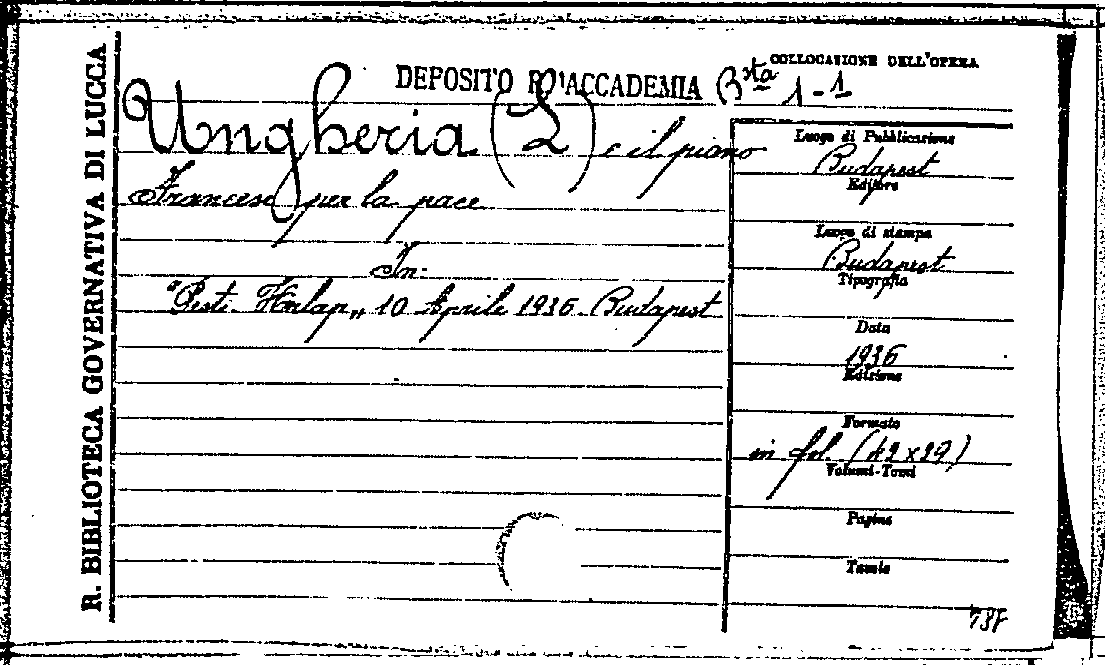 R. BIBLIOTECA GOVERNATIVA DI LUCCA
DEPOSITO R. ACCADEMIA
COLLOCAZIONE DELL'OPERA
Bsta 1-1
Ungheria (L') e il piano
Francese per la pace
In:
"Pesti Hirlap„ 10 Aprile 1936. Budapest
Luogo di Pubblicazione
Budapest
Editore
Luogo di stampa
Budapest
Tipografia
Data
1936
Edizione
Formato
in fol. (42x29)
Volumi-Tomi
Pagine
Tavole